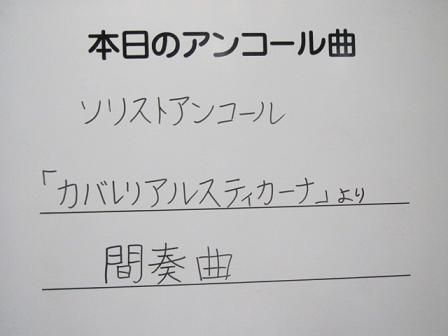 本日のアンコール曲
ソリストアンコール
「カバレリアルスティカーナ」より
間奏曲